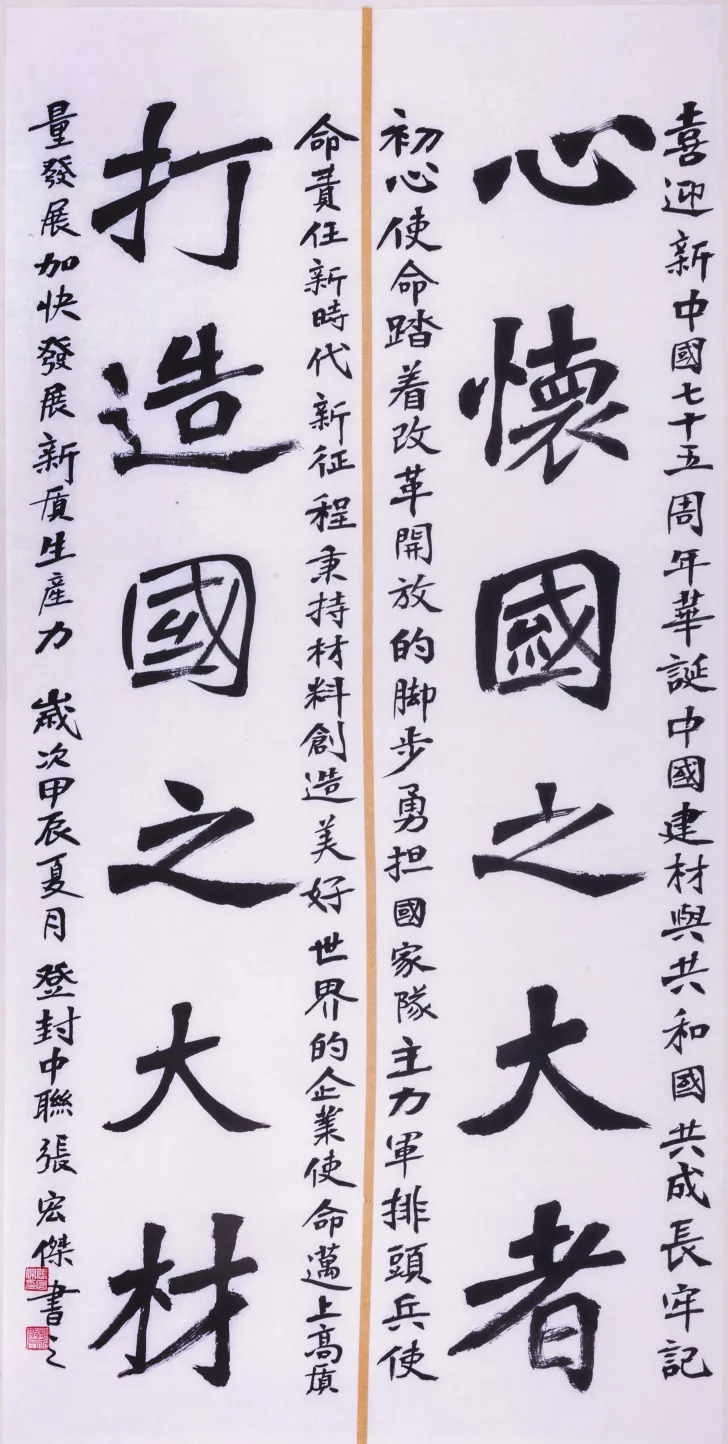 喜迎新中國七十五周年華誕中國建材與共和國共成長牢記
心懷國之大者
初心使命踏着改革開放的脚步勇担國家隊主力軍排頭兵使
命責任新時代新征程秉持材料創造美好世界的企業使命邁上高質
打造國之大材
量發展加快發展新质生産力 歲次甲辰夏月登封中聯張宏傑書之